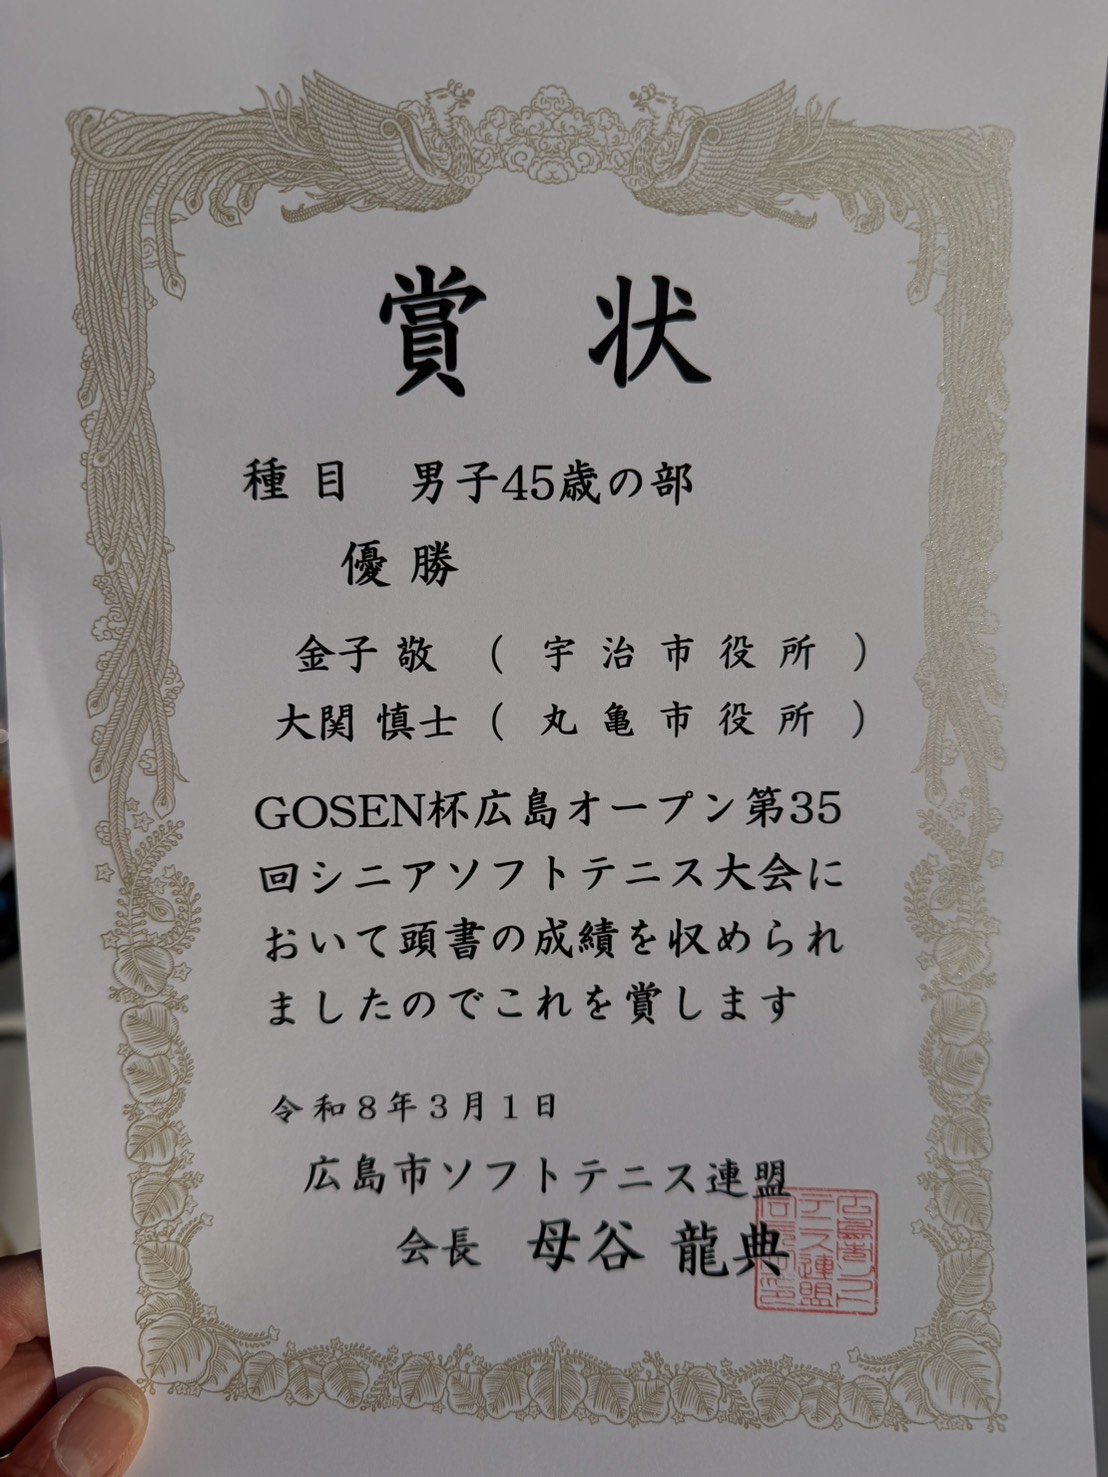 賞状
種目 男子45歳の部
優勝
金子 敬 (宇治市役所)
大関 慎士 (丸亀市役所)
GOSEN杯広島オープン第35
回シニアソフトテニス大会に
おいて頭書の成績を収められ
ましたのでこれを賞します
令和8年3月1日
広島市ソフトテニス連盟
会長 母谷 龍典